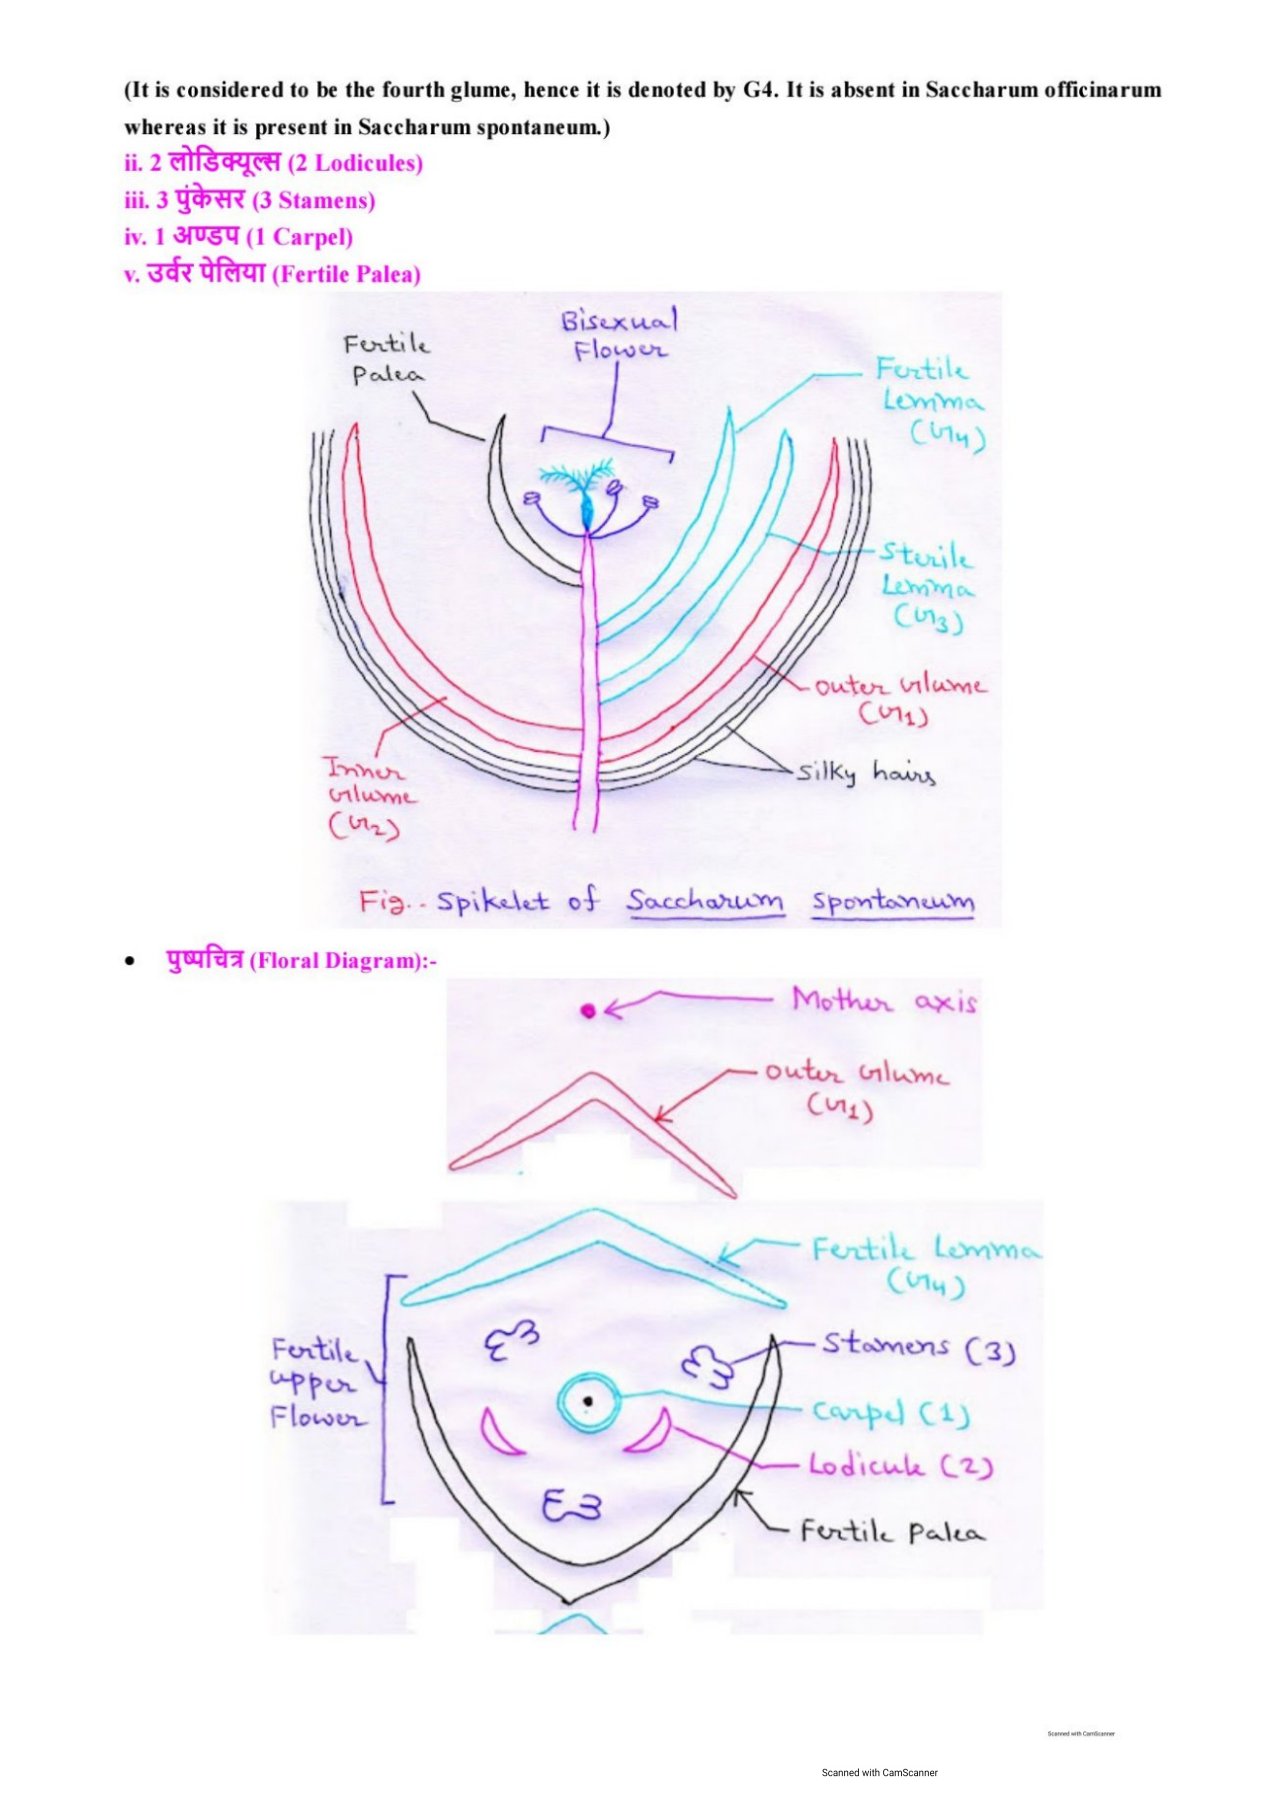 (It is considered to be the fourth glume, hence it is denoted by G4. It is absent in Saccharum officinarum
whereas it is present in Saccharum spontaneum.)
ii. 2 लोडिक्यूल्स (2 Lodicules)
iii. 3 पुंकेसर (3 Stamens)
iv. 1 अण्डप (1 Carpel)
v. उर्वर पेलिया (Fertile Palea)
Bisexual
Flower
Fertile
Palea
Fertile
Lemma
(G4)
Sterile
Lemma
(G3)
Outer Glume
(G1)
Silky hairs
Inner
Glume
(G2)
Fig.- Spikelet of Saccharum spontaneum
• पुष्पचित्र (Floral Diagram):-
Mother axis
Outer Glume
(G1)
Fertile Lemma
(G4)
Fertile
upper
Flower
Stamens (3)
Carpel (1)
Lodicule (2)
Fertile Palea
Scanned with CamScanner
Scanned with CamScanner